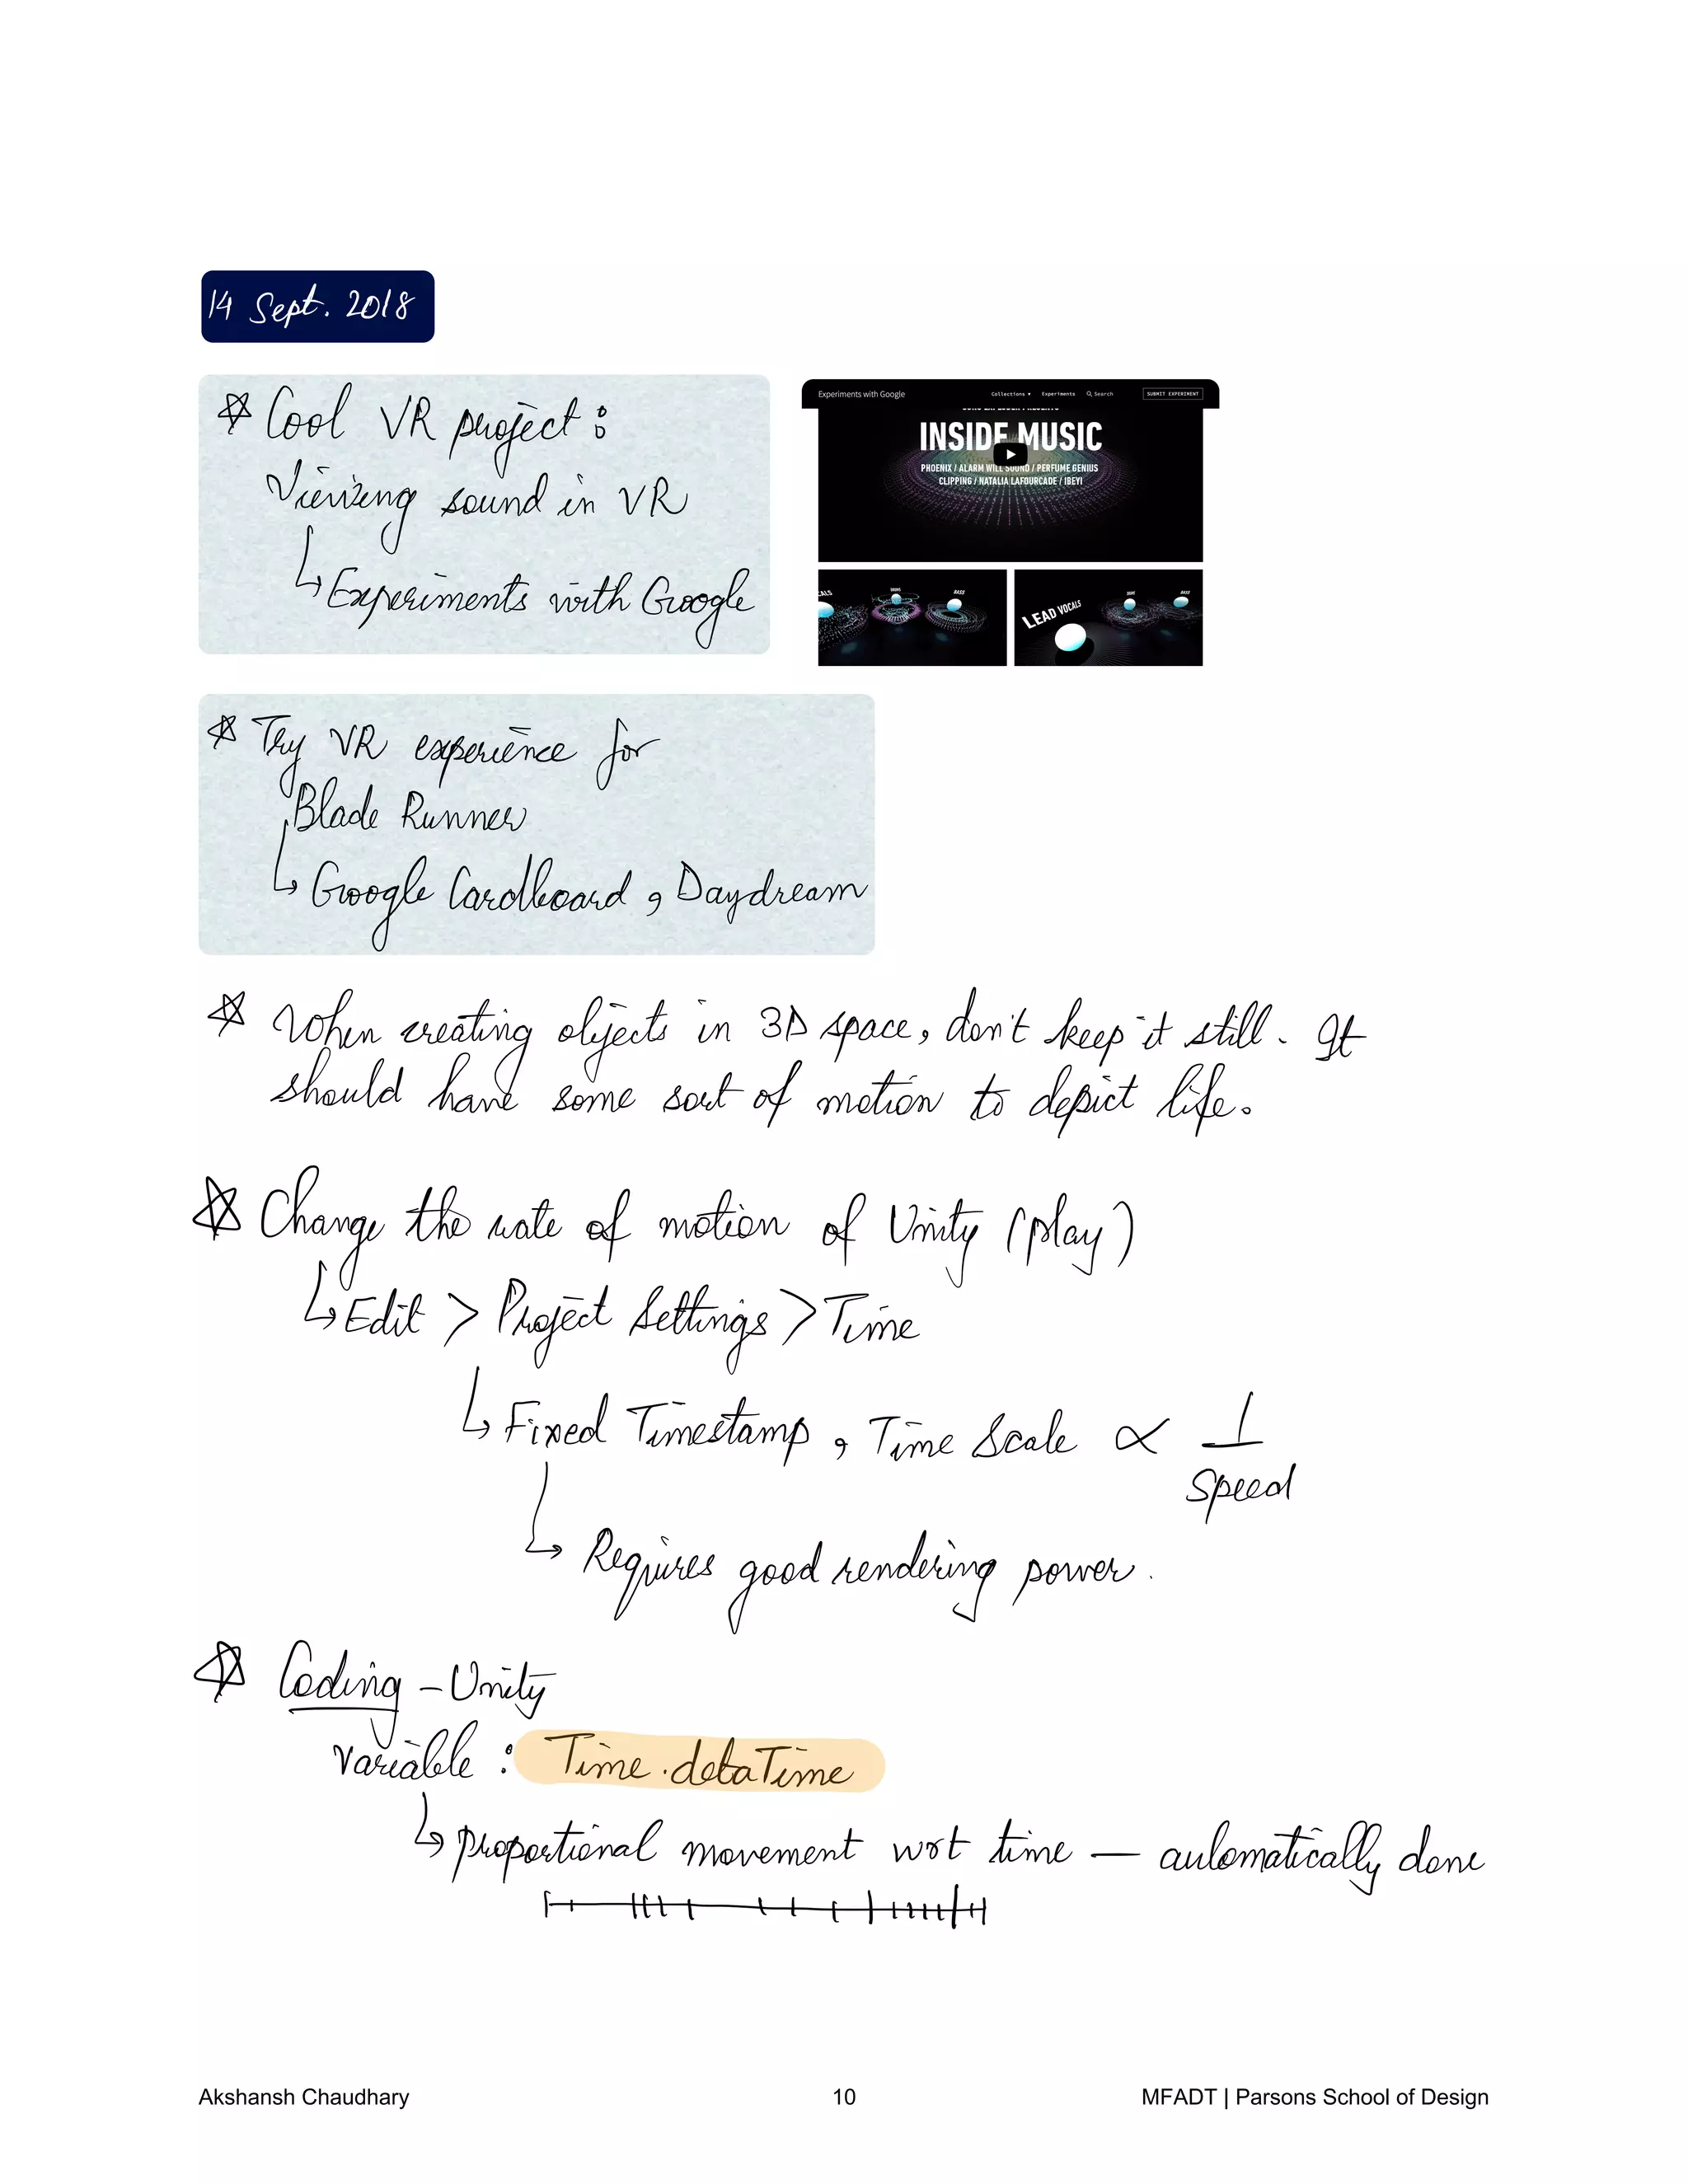 14 Sept. 2018
☆ Cool VR project:
Viewing sound in VR
↳ Experiments with Google
Experiments with Google
Collections ▾ Experiments Search SUBMIT EXPERIMENT
INSIDE MUSIC
PHOENIX / ALARM WILL SOUND / PERFUME GENIUS
CLIPPING / NATALIA LAFOURCADE / IBEYI
BASS
LEAD VOCALS
☆ Try VR experience for
Blade Runner
↳ Google Cardboard, Daydream
☆ When creating objects in 3D space, don't keep it still. It
should have some sort of motion to depict life.
☆ Change the rate of motion of Unity (play)
↳ Edit > Project Settings > Time
↳ Fixed Timestamp, Time Scale ∝ 1
Speed
↳ Requires good rendering power.
☆ Coding - Unity
variable : Time.deltaTime
↳ proportional movement wrt time — automatically done
Akshansh Chaudhary 10 MFADT | Parsons School of Design